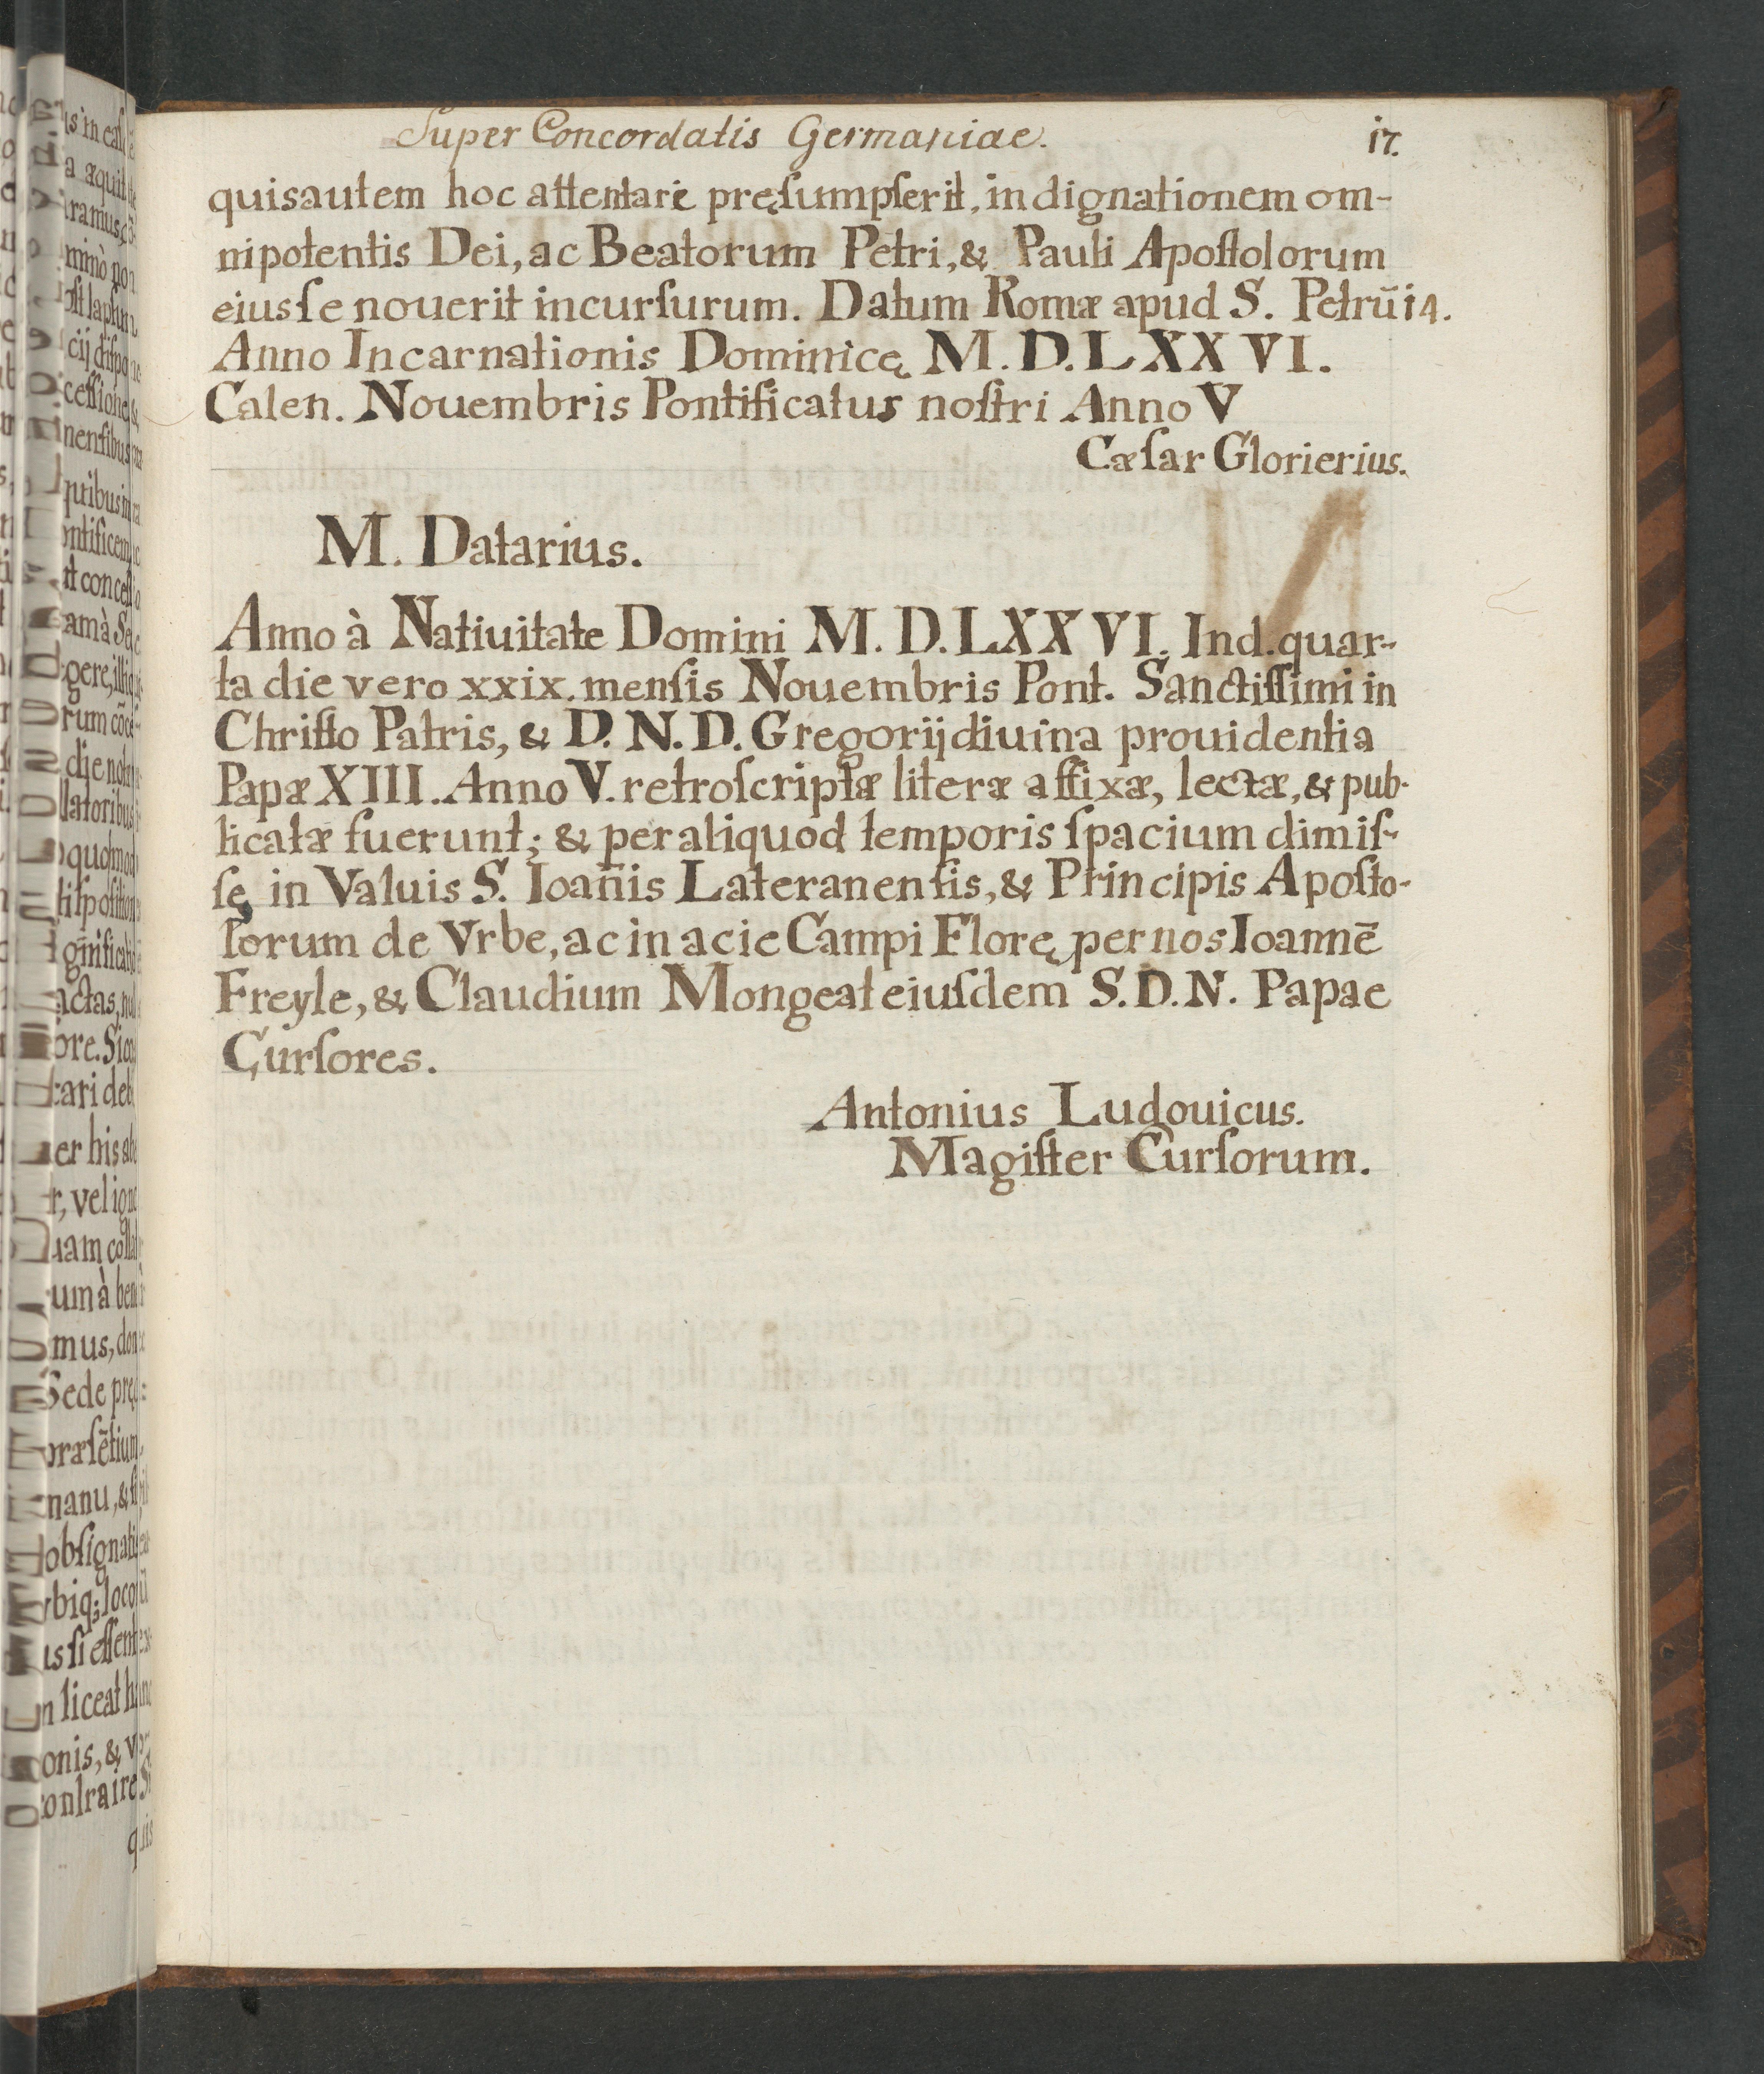 Super Concordatis Germaniae.
17.
quisautem hoc attentare pręſumpſerit, indignationem om-
nipotentis Dei, ac Beatorum Petri, & Pauli Apoſtolorum
eius ſe nouerit incurſurum. Datum Romæ apud S. Petrū 14.
Anno Incarnationis Dominicę M.D.LXXVI.
Calen. Nouembris Pontificatus noſtri Anno V
Cæſar Glorierius.
M. Datarius.
Anno à Natiuitate Domini M.D.LXXVI. Ind. quar-
ta die vero xxix. menſis Nouembris Pont. Sanctiſſimi in
Chriſto Patris, & D.N.D. Gregorij diuina prouidentia
Papæ XIII. Anno V. retroſcriptæ literæ affixæ, lectæ, & pub-
licatæ fuerunt; & per aliquod temporis ſpacium dimiſ-
ſę in Valuis S. Ioan̄is Lateranenſis, & Principis Apoſto-
lorum de Vrbe, ac in acie Campi Florę per nos Ioannē
Freyle, & Claudium Mongeat eiuſdem S.D.N. Papae
Curſores.
Antonius Ludouicus.
Magiſter Curſorum.